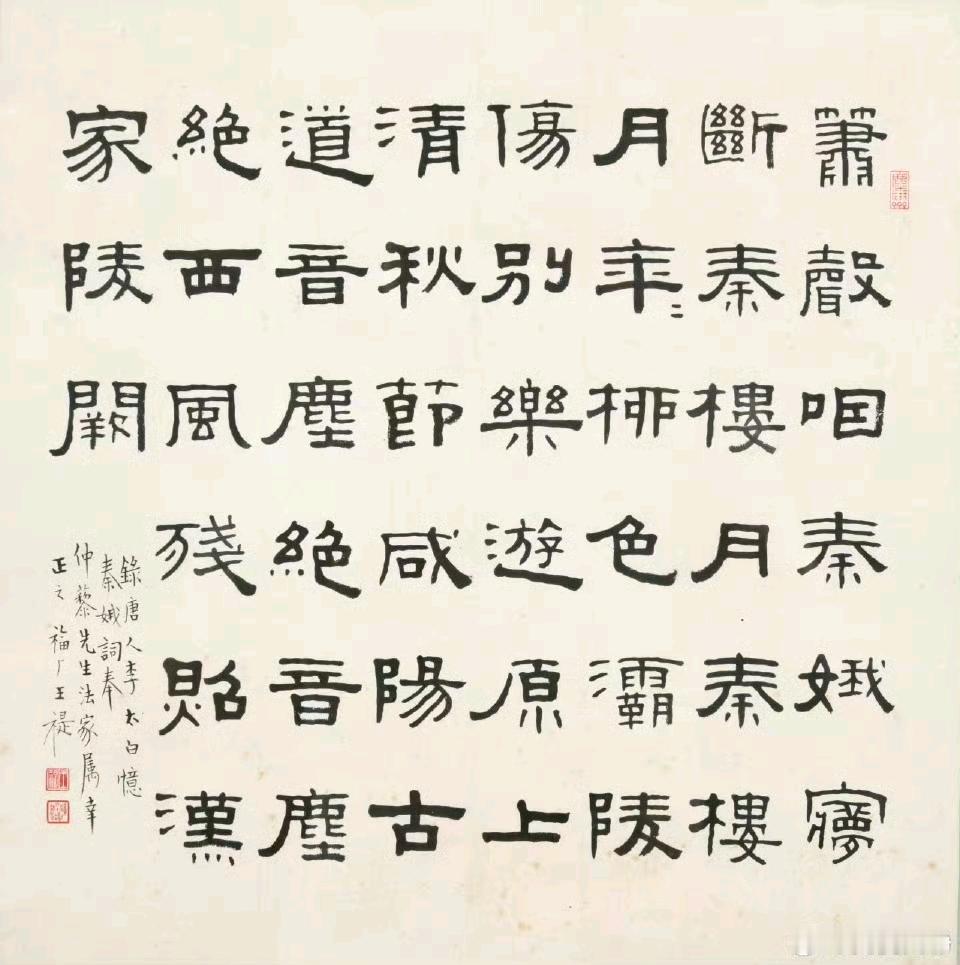 簫聲咽秦娥㝱
斷秦樓月秦樓
月年〻柳色灞陵
傷別樂遊原上
清秋節咸陽古
道音塵絕音塵
絕西風殘照漢
家陵闕
錄唐人李太白憶
秦娥詞奉
仲藜先生法家屬幸
正之福厂王禔